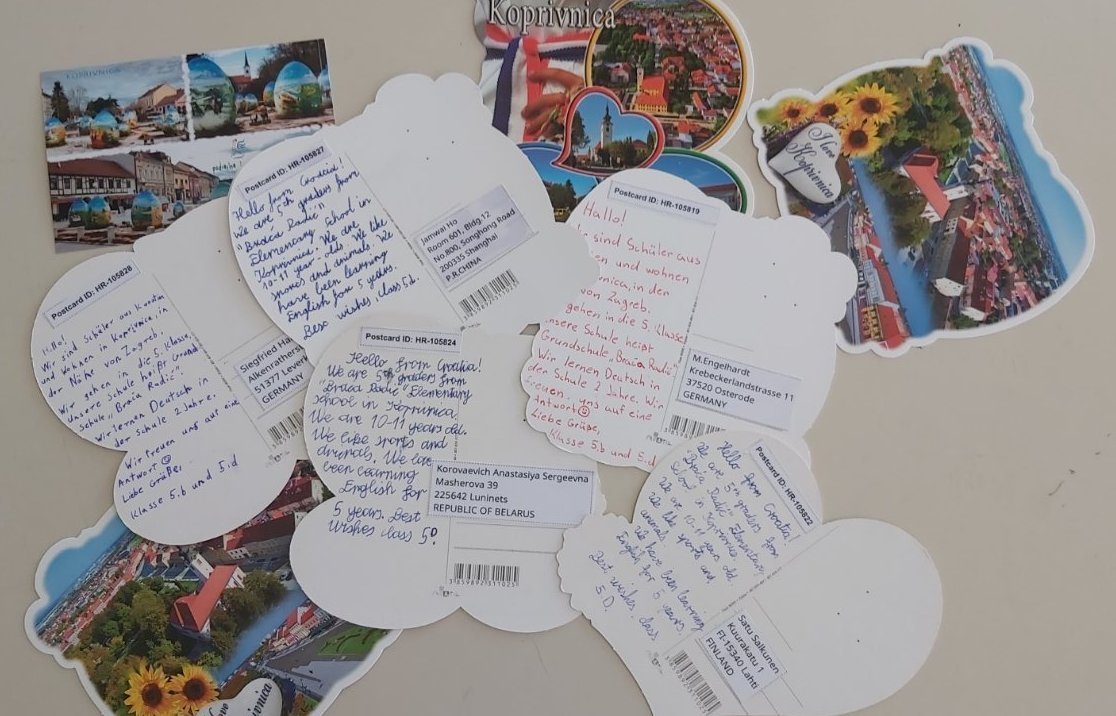 KOPRIVNICA
Koprivnica
I love
Koprivnica
Postcard ID: HR-105827
Hello from Croatia!
We are 5th graders from
"Braća Radić"
Elementary school in
Koprivnica. We are
10-11 year-olds. We like
sports and animals. We
have been learning
English for 5 years.
Best wishes, class 5.d.
Jamwal Ho
Room 601, Bldg.12
No.800, Songhong Road
200335 Shanghai
P.R.CHINA
Postcard ID: HR-105819
Hallo!
sind Schüler aus
en und wohnen
nica, in der
von Zagreb.
gehen in die 5. Klasse,
nsere Schule heißt
Grundschule „Braća Radić".
Wir lernen Deutsch in
der Schule 2 Jahre. Wir
freuen uns auf eine
Antwort ☺
Liebe Grüße,
Klasse 5.b und 5.d
M.Engelhardt
Krebeckerlandstrasse 11
37520 Osterode
GERMANY
Postcard ID: HR-105826
Hallo!
Wir sind Schüler aus Kroatien
und wohnen in Koprivnica, in
der Nähe von Zagreb.
Wir gehen in die 5. Klasse,
Unsere Schule heißt Grund
Schule „Braća Radić".
Wir lernen Deutsch in
der Schule 2 Jahre.
Wir freuen uns auf eine
Antwort ☺
Liebe Grüße,
Klasse 5.b und 5.d
Siegfried Ha
Alkenrathers
51377 Leverk
GERMANY
Postcard ID: HR-105824
Hello from Croatia!
We are 5th graders from
"Braća Radić" Elementary
school in Koprivnica.
We are 10-11 years old.
We like sports and
animals. We have
been learning
English for
5 years. Best
wishes class 5D.
Korovaevich Anastasiya Sergeevna
Masherova 39
225642 Luninets
REPUBLIC OF BELARUS
3 859892 311023
Postcard ID: HR-105822
Hello from Croatia!
We are 5th graders from
"Braća Radić" Elementary
School in Koprivnica
We are 10-11 years old.
We like sports and
animals.
We have been learning
English for 5 years.
Best wishes, class
5.D.
Satu Saikunen
Kuurakatu 1
FI-15340 Lahti
FINLAND